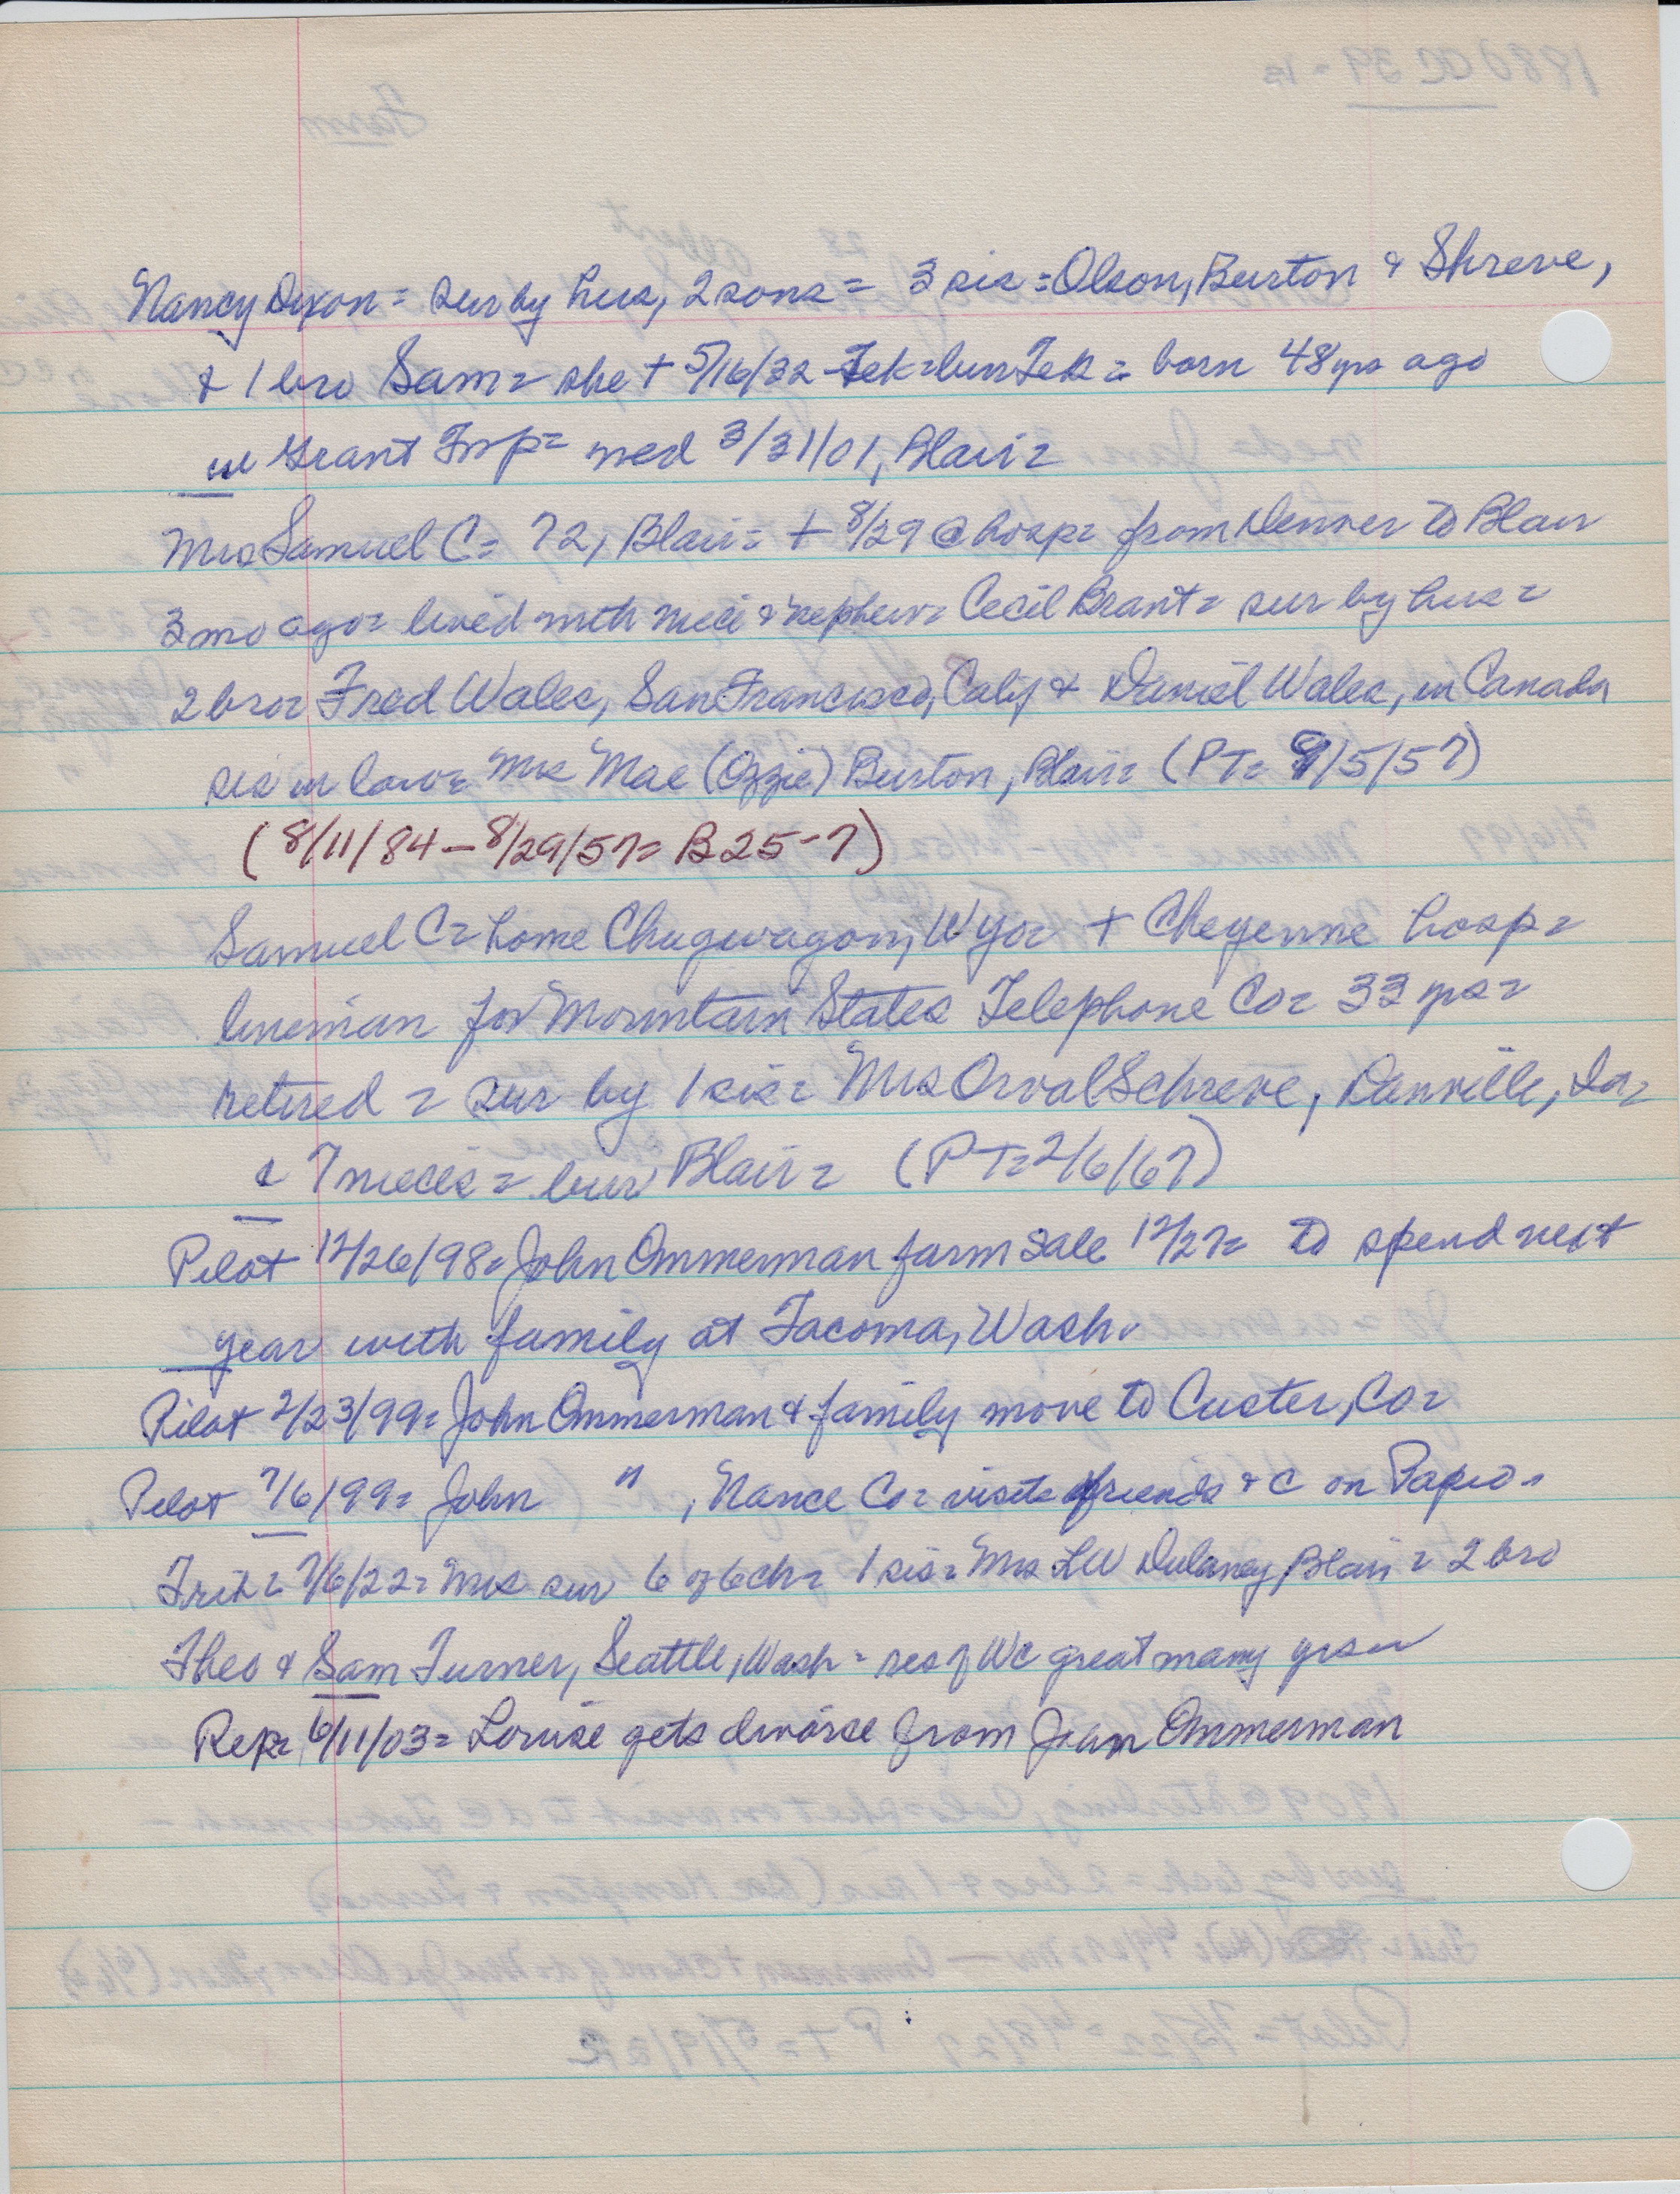 Nancy Dixon = sur by hus, 2 sons = 3 sis = Olson, Burton & Shreve,
& 1 bro Sam = she + 5/16/32 Tek = bur Tek = born 48 yrs ago
in Grant Twp = med 3/31/01, Blair =
Mrs Samuel C = 72, Blair = + 8/29 @ hosp = from Denver to Blair
3 mo ago = lived with niece & nephew = Cecil Brant = sur by hus =
2 bro = Fred Wales, San Francisco, Calif & Daniel Wales, in Canada
sis in law = Mrs Mae (Ozzie) Burton, Blair = (PT = 9/5/57)
(8/11/84 - 8/29/57 = B25-7)
Samuel C = home Chugwagon, Wyo = + Cheyenne hosp =
lineman for Mountain States Telephone Co = 33 yrs =
retired = sur by 1 sis = Mrs Orval Schreve, Danville, Ia =
& 7 nieces = bur Blair = (PT = 2/6/67)
Pilot 12/26/98 = John Ommerman farm sale 12/27 = to spend next
year with family at Tacoma, Wash.
Pilot 2/23/99 = John Ommerman & family move to Custer, Co =
Pilot 7/6/99 = John " , Nance Co = visits friends & C on Papio.
Trib = 7/6/22 = Mrs sur 6 of 6 ch = 1 sis = Mrs LW Dulaney, Blair = 2 bro
Theo & Sam Turner, Seattle, Wash = res of WC great many yrs
Rep = 6/11/03 = Louise gets divorse from John Ommerman